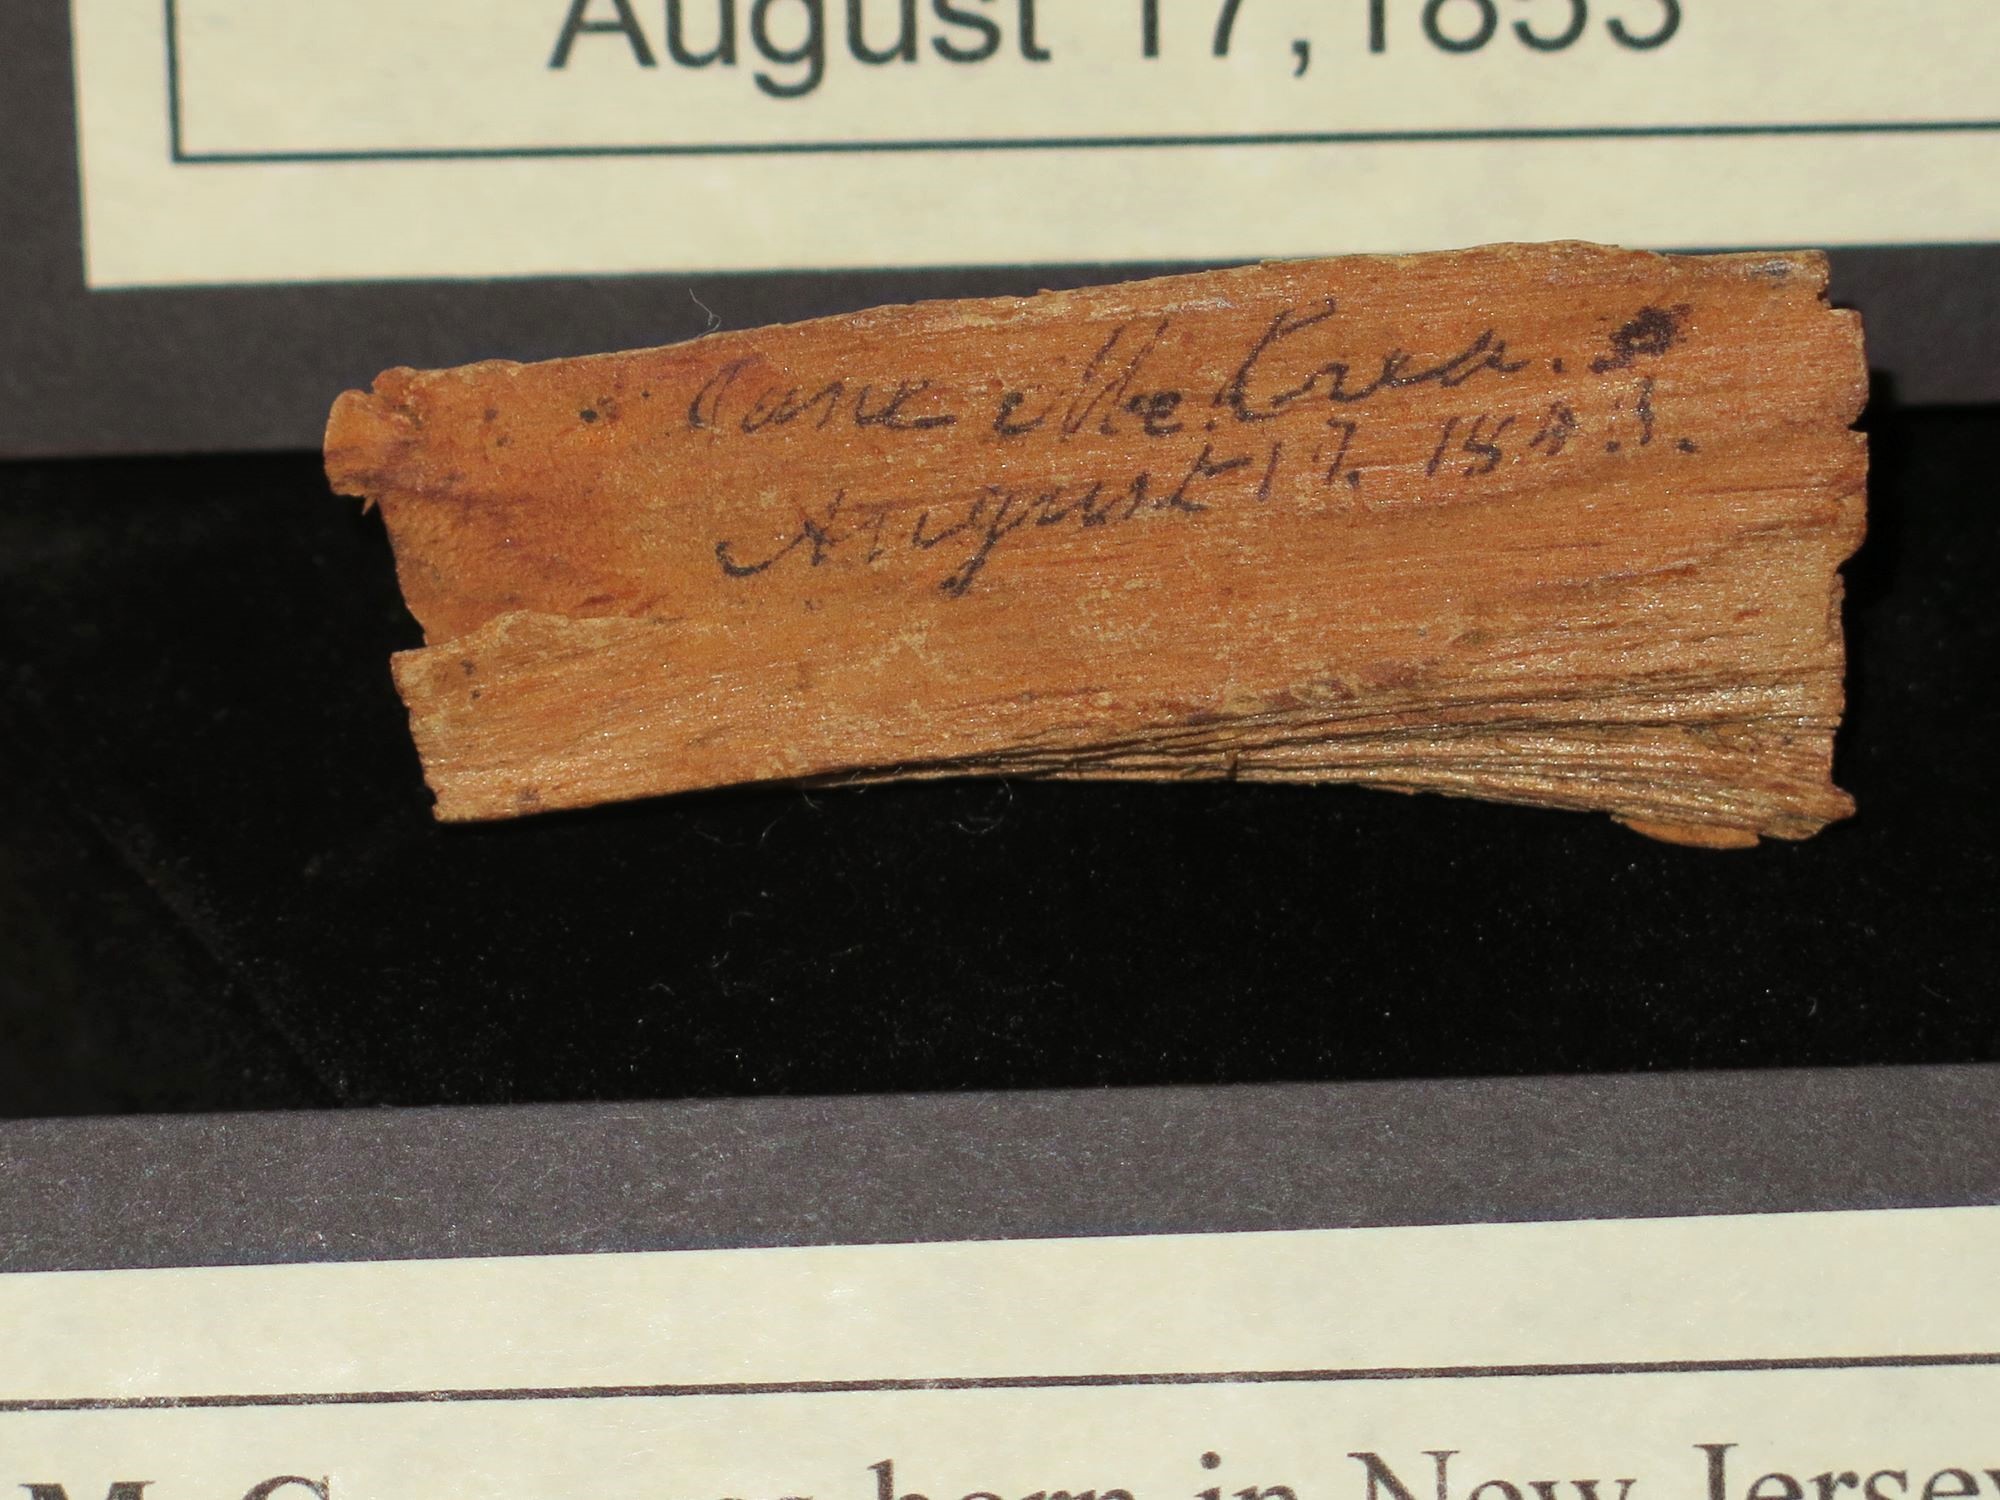 August 17, 1853
Jane McCrea.
August 17. 1853.
born in New Jersey